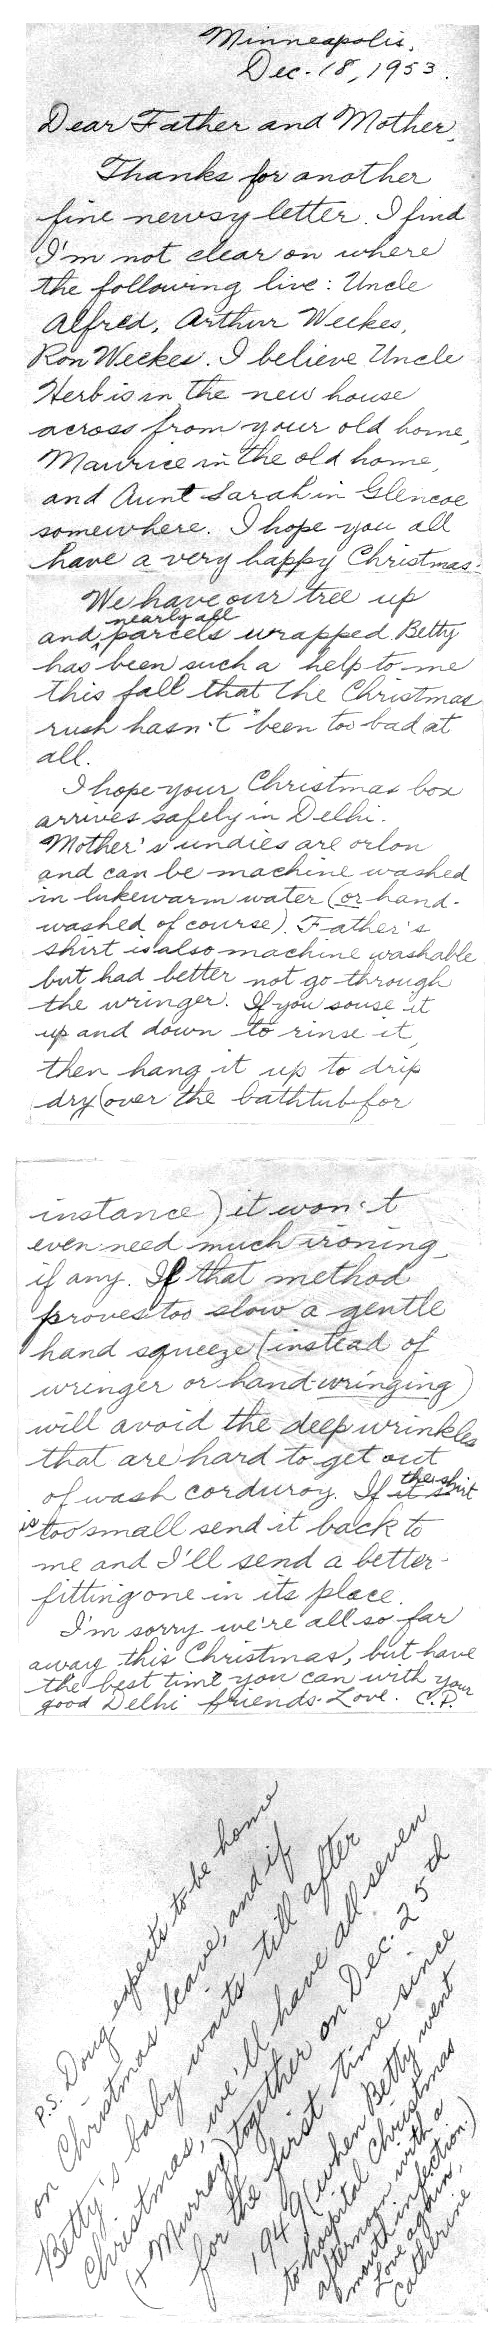 Minneapolis,
Dec. 18, 1953.
Dear Father and Mother,
Thanks for another
fine newsy letter. I find
I'm not clear on where
the following live: Uncle
Alfred, Arthur Weekes,
Ron Weekes. I believe Uncle
Herb is in the new house
across from your old home,
Maurice in the old home,
and Aunt Sarah in Glencoe
somewhere. I hope you all
have a very happy Christmas.
We have our tree up
nearly all
and parcels wrapped. Betty
has been such a help to me
this fall that the Christmas
rush hasn't been too bad at
all.
I hope your Christmas box
arrives safely in Delhi.
Mother's undies are orlon
and can be machine washed
in lukewarm water (or hand-
washed of course). Father's
shirt is also machine washable
but had better not go through
the wringer. If you souse it
up and down to rinse it,
then hang it up to drip
dry (over the bathtub for
instance) it won't
even need much ironing,
if any. If that method
proves too slow a gentle
hand squeeze (instead of
wringer or hand-wringing)
will avoid the deep wrinkles
that are hard to get out
of wash corduroy. If it's the shirt
is too small send it back to
me and I'll send a better-
fitting one in its place.
I'm sorry we're all so far
away this Christmas, but have
the best time you can with your
good Delhi friends. Love. C.P.
P.S. Doug expects to be home
on Christmas leave, and if
Betty's baby waits till after
Christmas, we'll have all seven
(+ Murray) together on Dec. 25th
for the first time since
1949 (when Betty went
to hospital Christmas
afternoon with a
mouth infection.)
Love again,
Catherine